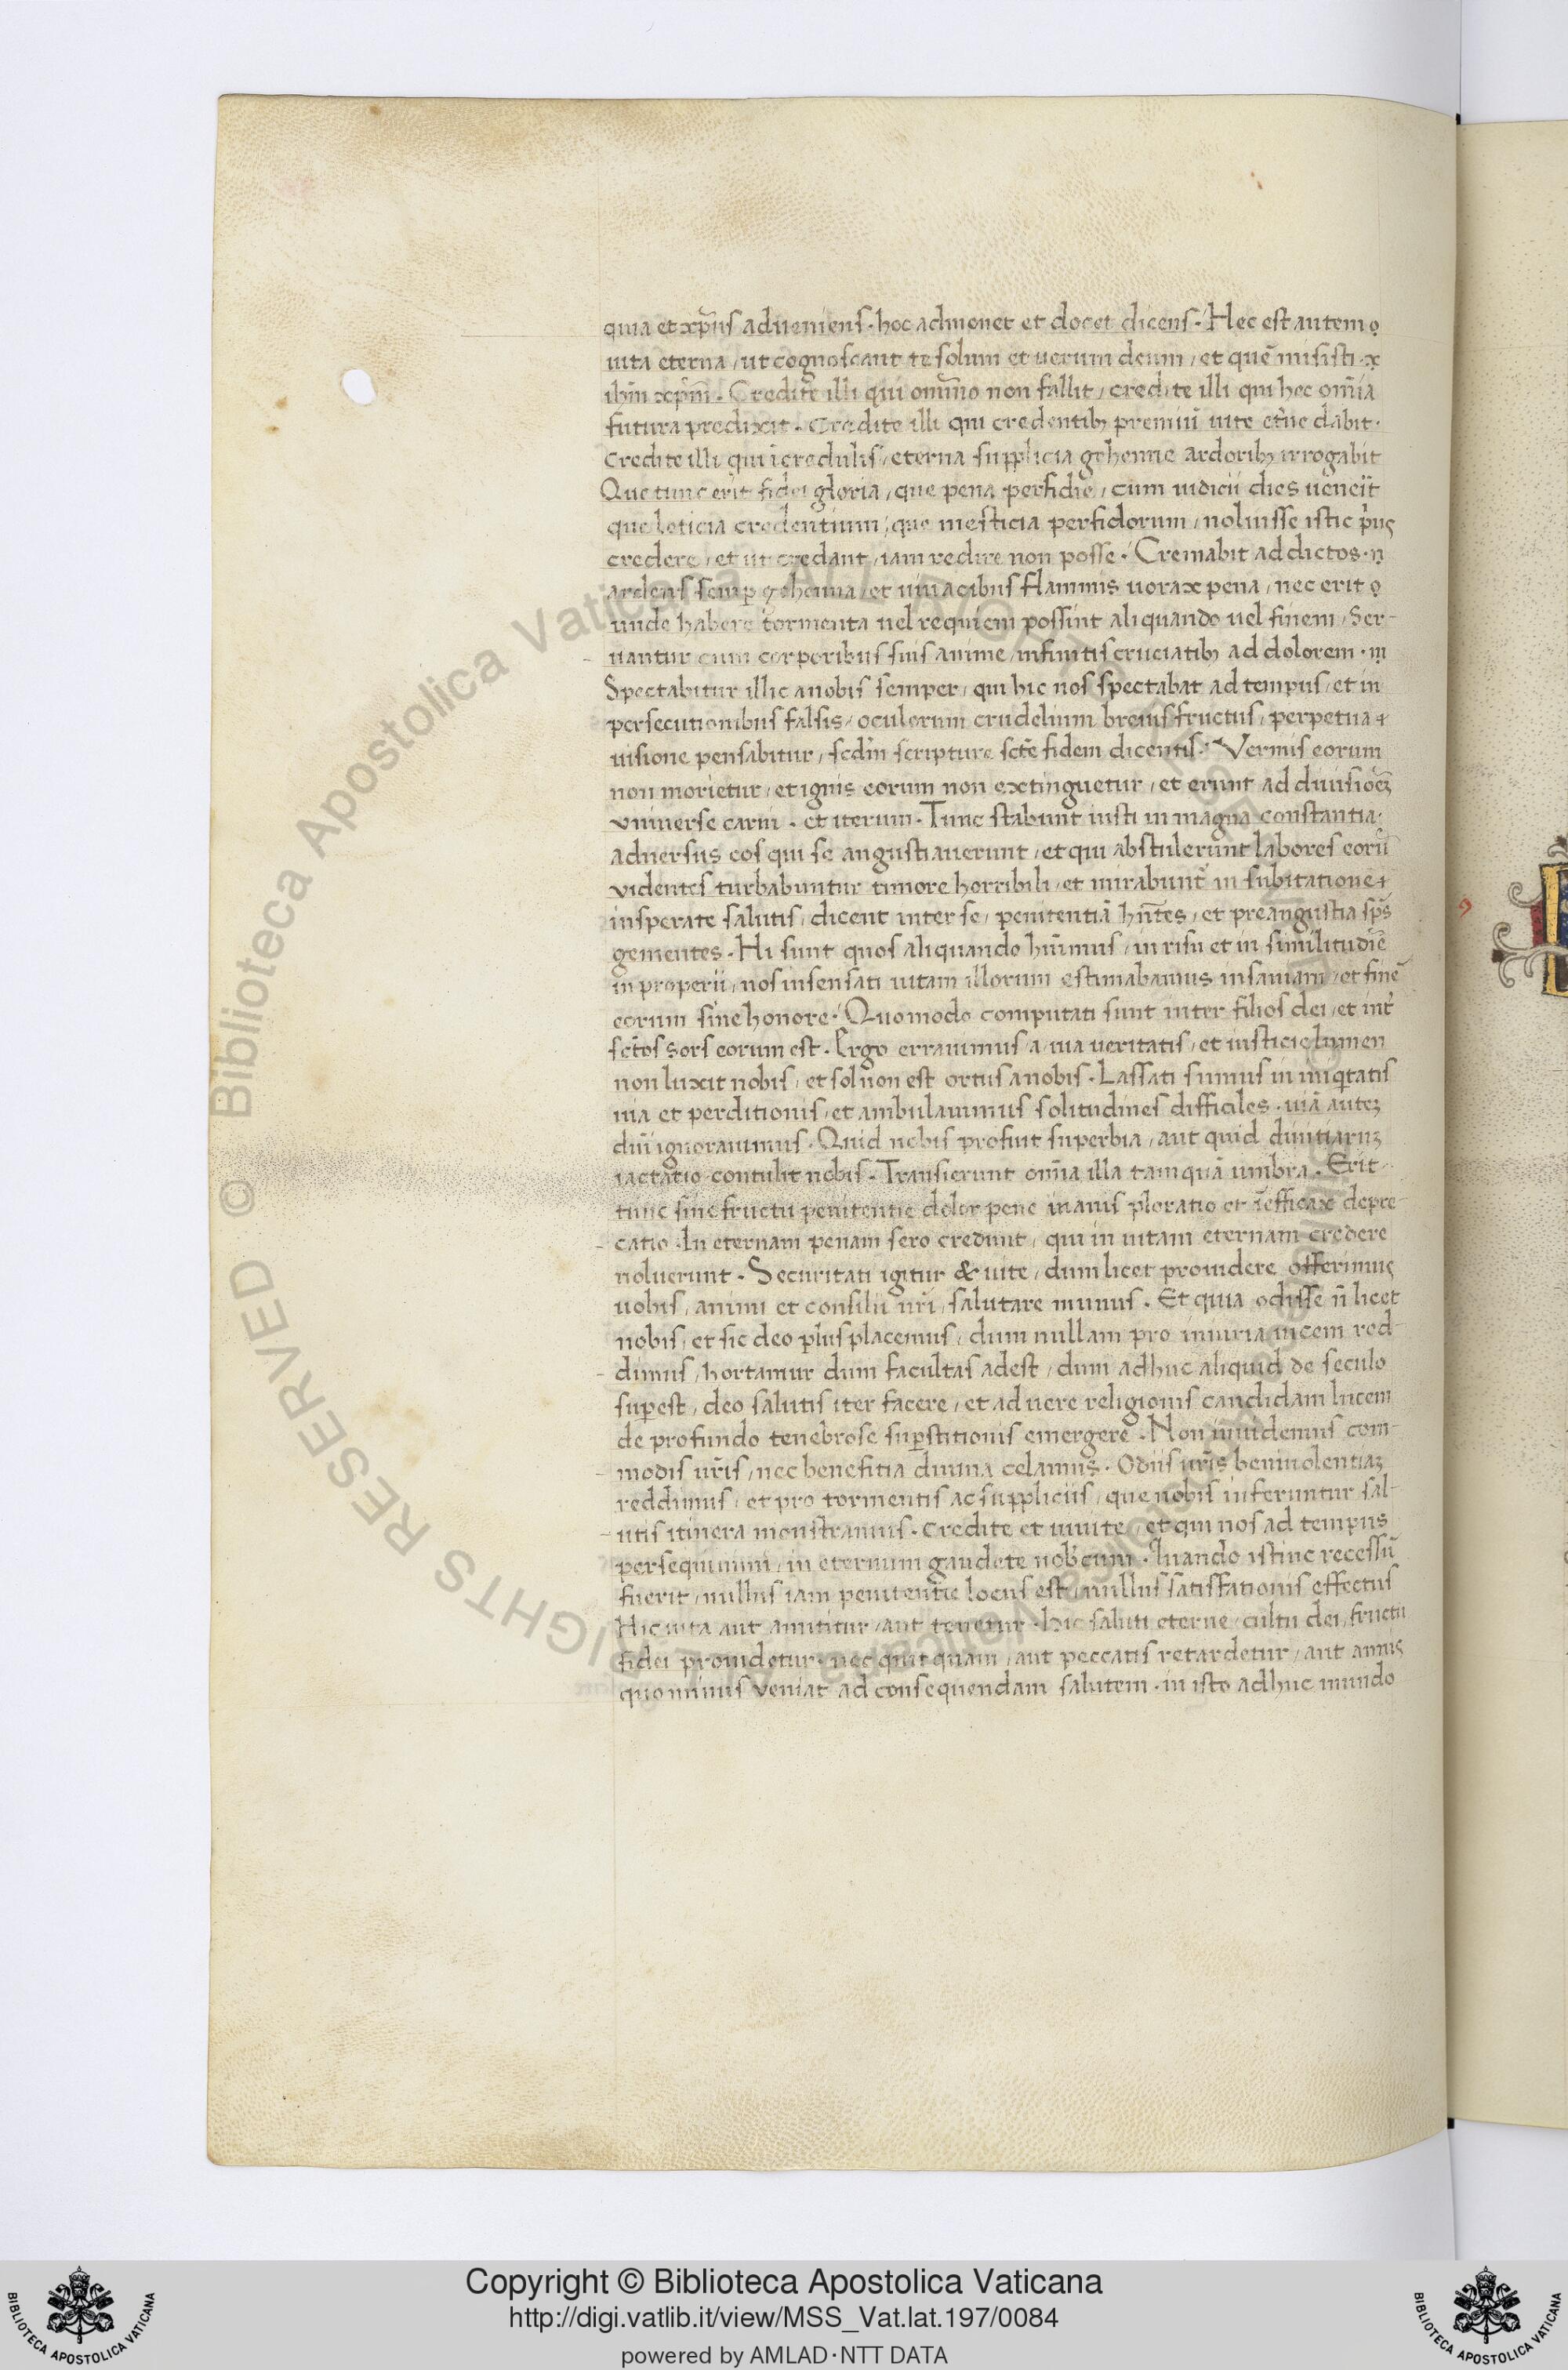 quia et xp̄us adueniens · hoc admonet et docet dicens · Hec est autem
uita eterna / ut cognoscant te solum et uerum deum / et quē misisti ·
ihm̄ xp̄m̄ · Credite illi qui om̄ino non fallit / credite illi qui hec om̄ia
futura predixit · Credite illi qui credentibꝫ premiū uite et'ne dabit ·
Credite illi qui īcredulis / eterna supplicia gehenne ardoribꝫ irrogabit
Que tunc erit fidei gloria / que pena perfidie / cum iudicii dies ueneīt
que leticia credentium / que mesticia perfidorum / noluisse istic p'us
credere / et ut credant / iam redire non posse · Cremabit addictos ·
ardens semꝑ gehenna / et uiuacibus flammis uorax pena / nec erit
unde habere tormenta uel requiem possint aliquando uel finem / Ser-
uantur cum corporibus suis anime / infinitis cruciatibꝫ ad dolorem ·
Spectabitur illic anobis semper / qui hic nos spectabat ad tempus / et in
persecutionibus falsis / oculorum crudelium breuis fructus / perpetua
uisione pensabitur / scd'm scripture sctē fidem dicentis · Vermis eorum
non morietur / et ignis eorum non extinguetur / et erunt ad diuisiōeꝫ
vniuerse carni · et iterum · Tunc stabunt iusti in magna constantia ·
aduersus eos qui se angustiauerunt / et qui abstulerunt labores eorū
videntes turbabuntur timore horribili / et mirabunt' in subitatione
insperate salutis / dicent inter se / penitentiā hn̄tes / et preangustia sp̄s
gementes · Hi sunt quos aliquando huīmus / in risu et in similitudiē
in properii / nos insensati uitam illorum estimabamus insaniam / et finē
eorum sine honore · Quomodo computati sunt inter filios dei / et int'
sctōs sors eorum est · Ergo errauimus a uia ueritatis / et iusticie lumen
non luxit nobis / et sol non est ortus anobis · Lassati sumus in iniqtatis
uia et perditionis / et ambulauimus solitudines difficiles · uiā auteꝫ
dn̄i ignorauimus · Quid nobis profuit superbia / aut quid diuitiaruꝫ
iactatio contulit nobis · Transierunt om̄ia illa tamquā umbra · Erit
tunc sine fructu penitentie dolor pene inanis ploratio et īefficax depre-
catio · In eternam penam sero credunt / qui in uitam eternam credere
noluerunt · Securitati igitur & uite / dum licet prouidere offerimus
uobis / animi et consilii nr̄i / salutare munus · Et quia odisse n̄ licet
nobis / et sic deo plus placemus / dum nullam pro iniuria uicem red-
dimus / hortamur dum facultas adest / dum adhuc aliquid de seculo
suꝑest / deo salutis iter facere / et ad uere religionis candidam lucem
de profundo tenebrose suꝑstitionis emergere · Non inuidemus com-
modis ur̄is / nec benefitia diuina celamus · Odiis ur̄is beniuolentiaꝫ
reddimus / et pro tormentis ac suppliciis / que nobis inferuntur sal-
utis itinera monstramus · Credite et uiuite / et qui nos ad tempus
persequimini / in eternum gaudete nob'cum · Quando istinc recessū
fuerit / nullus iam penitentie locus est / nullus satisfationis effectus
Hic uita aut amittitur / aut tenetur · hic saluti eterne / cultu dei / fructu
fidei prouidetur · nec quitquam / aut peccatis retardetur / aut annis
quominus veniat ad consequendam salutem · in isto adhuc mundo
© Biblioteca Apostolica Vaticana ALL RIGHTS RESERVED
Copyright © Biblioteca Apostolica Vaticana
http://digi.vatlib.it/view/MSS_Vat.lat.197/0084
powered by AMLAD·NTT DATA
BIBLIOTECA APOSTOLICA VATICANA
BIBLIOTECA APOSTOLICA VATICANA